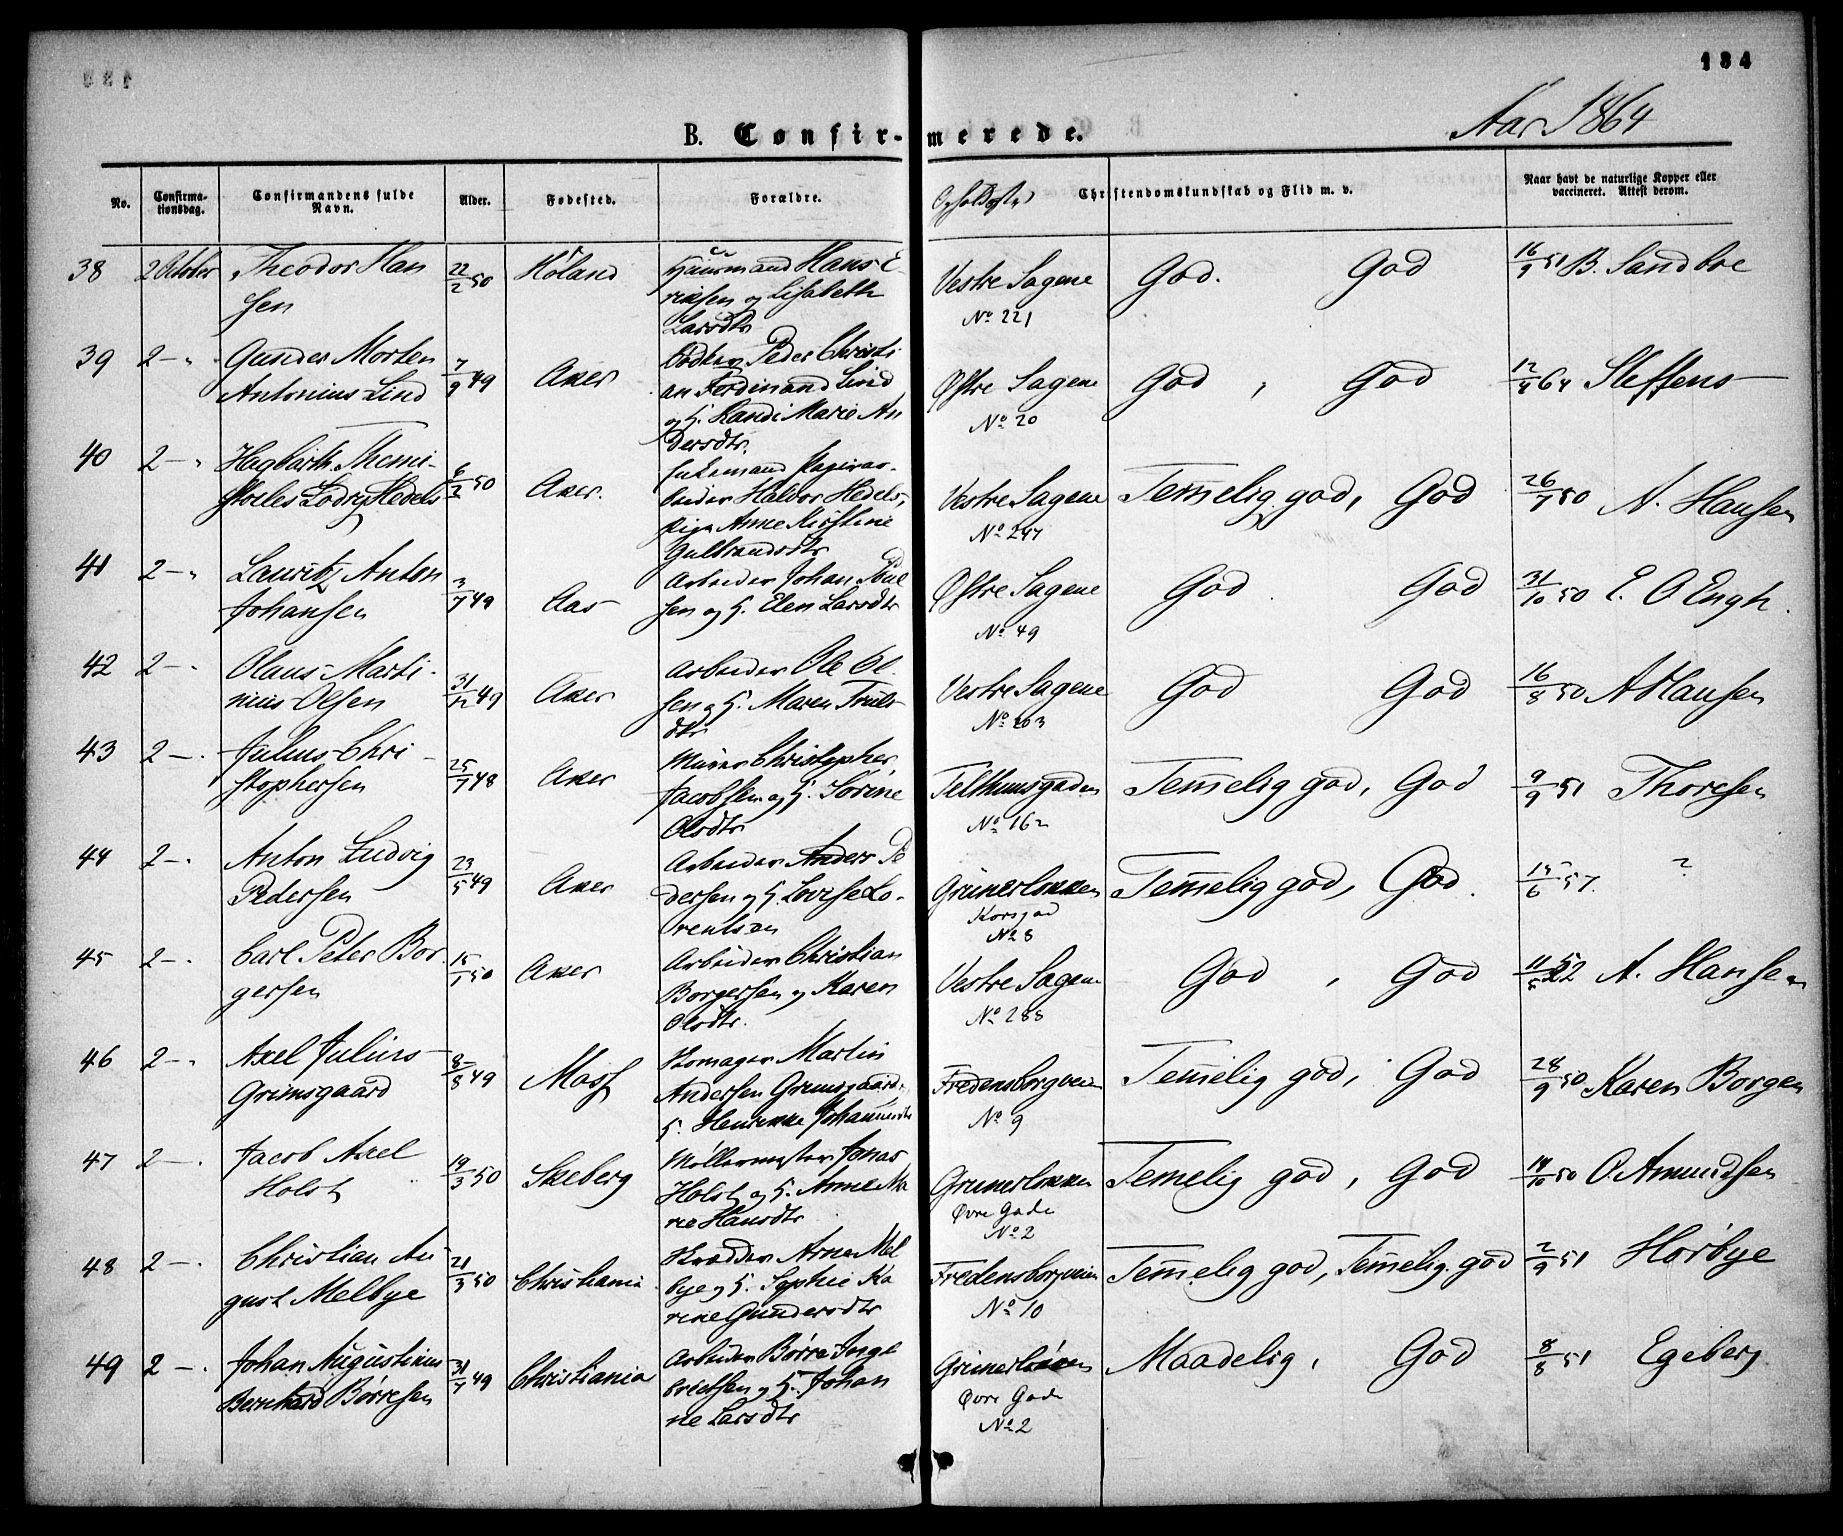 134
Aar 1864
B. Confir-merede.
No.
Confirma-
tionsdag.
Confirmandens fulde
Navn.
Alder.
Fødested.
Forældre.
Opholdssted
Christendomskundskab og Flid m. v.
Naar havt de naturlige Kopper eller
vaccineret. Attest derom.
38 2 October Theodor Han
sen
22/2 50 Høland
Huusmand Hans E
riksen og Lisabeth
Larsdtr
Vestre Sagene
No 221
God. God
16/9 51 B. Sandboe
39 2 – " Gunder Morten
Antonius Lind
7/9 49 Aker
Peder Christi
an Ferdinand Lind
og H. Randi Marie An
dersdtr.
Østre Sagene
No 20
God , God
12/4 64 Steffens
40 2 – " Hagbarth Themi-
stocles Lodvig Hedels
6/2 50 Aker.
Enkemand Papirar-
beider Haldor Hedels,
Pige Anne Kirstine
Gulbrandsdtr
Vestre Sagene
No 247
Temmelig god, God
26/7 50 A. Hansen
41 2 – " Lauritz Anton
Johansen
3/7 49 Aas
Arbeider Johan Poul
sen og H. Elen Larsdtr
Østre Sagene
No 49
God God
31/10 50 E. O Engh.
42 2 – " Olaus Marti-
nius Olsen
31/12 49 Aker
Arbeider Ole Ol
sen og H. Maren Truls
dtr
Vestre Sagene
No 203
God God
16/8 50 A Hansen
43 2 – . Julius Chri
stophersen
25/7 48 Aker
Murer Christopher
Jacobsen og H. Sørine
Olsdtr
Telthuusgaden
No 162
Temmelig god, God
9/9 51 Thoresen
44 2 – . Anton Ludvig
Pedersen
23/5 49 Aker
Arbeider Anders Pe
dersen og H. Lovise Lo-
rentsen
Grünerløkken
Korsgad
No 8
Temmelig god, God.
15/6 57. ?
45 2 – . Carl Peter Bor
gersen
15/1 50 Aker
Arbeider Christian
Borgersen og Karen
Olsdtr.
Vestre Sagene
No 288
God , God
52 A. Hansen
46 2 – " Axel Julius
Grimsgaard
8/8 49 Moss
Skomager Martin
Andersen Grimsgaard,
H. Henrikke Johannesdtr
Fredensborgveien
No 9
Temmelig god, God
28/9 50 Karen Borgen
47 2 – . Jacob Axel
Holst
19/3 50 Skeberg
Møllermester Jonas
Holst og H. Anne Ma
rie Hansdtr
Grünerløkken
Øvre Gade
No 2
Temelig god, God
14/10 50 O. Amundsen
48 2 – . Christian Au-
gust Melbye
21/3 50 Christiania
Skrædder Arne Mel
bye og H. Sophie Ka
rine Gundersdtr
Fredensborgveien
No 10
Temmelig god, Temmelig god
2/9 51 Hørbye
49 2 – . Johan Augustinus
Bernhard Børresen
31/7 49 Christiania
Arbeider Børre Inge
bretsen og H. Johan
ne Larsdtr
Grünerløkken
Øvre Gade
No 2
Maadelig, God
8/8 51 Egeberg